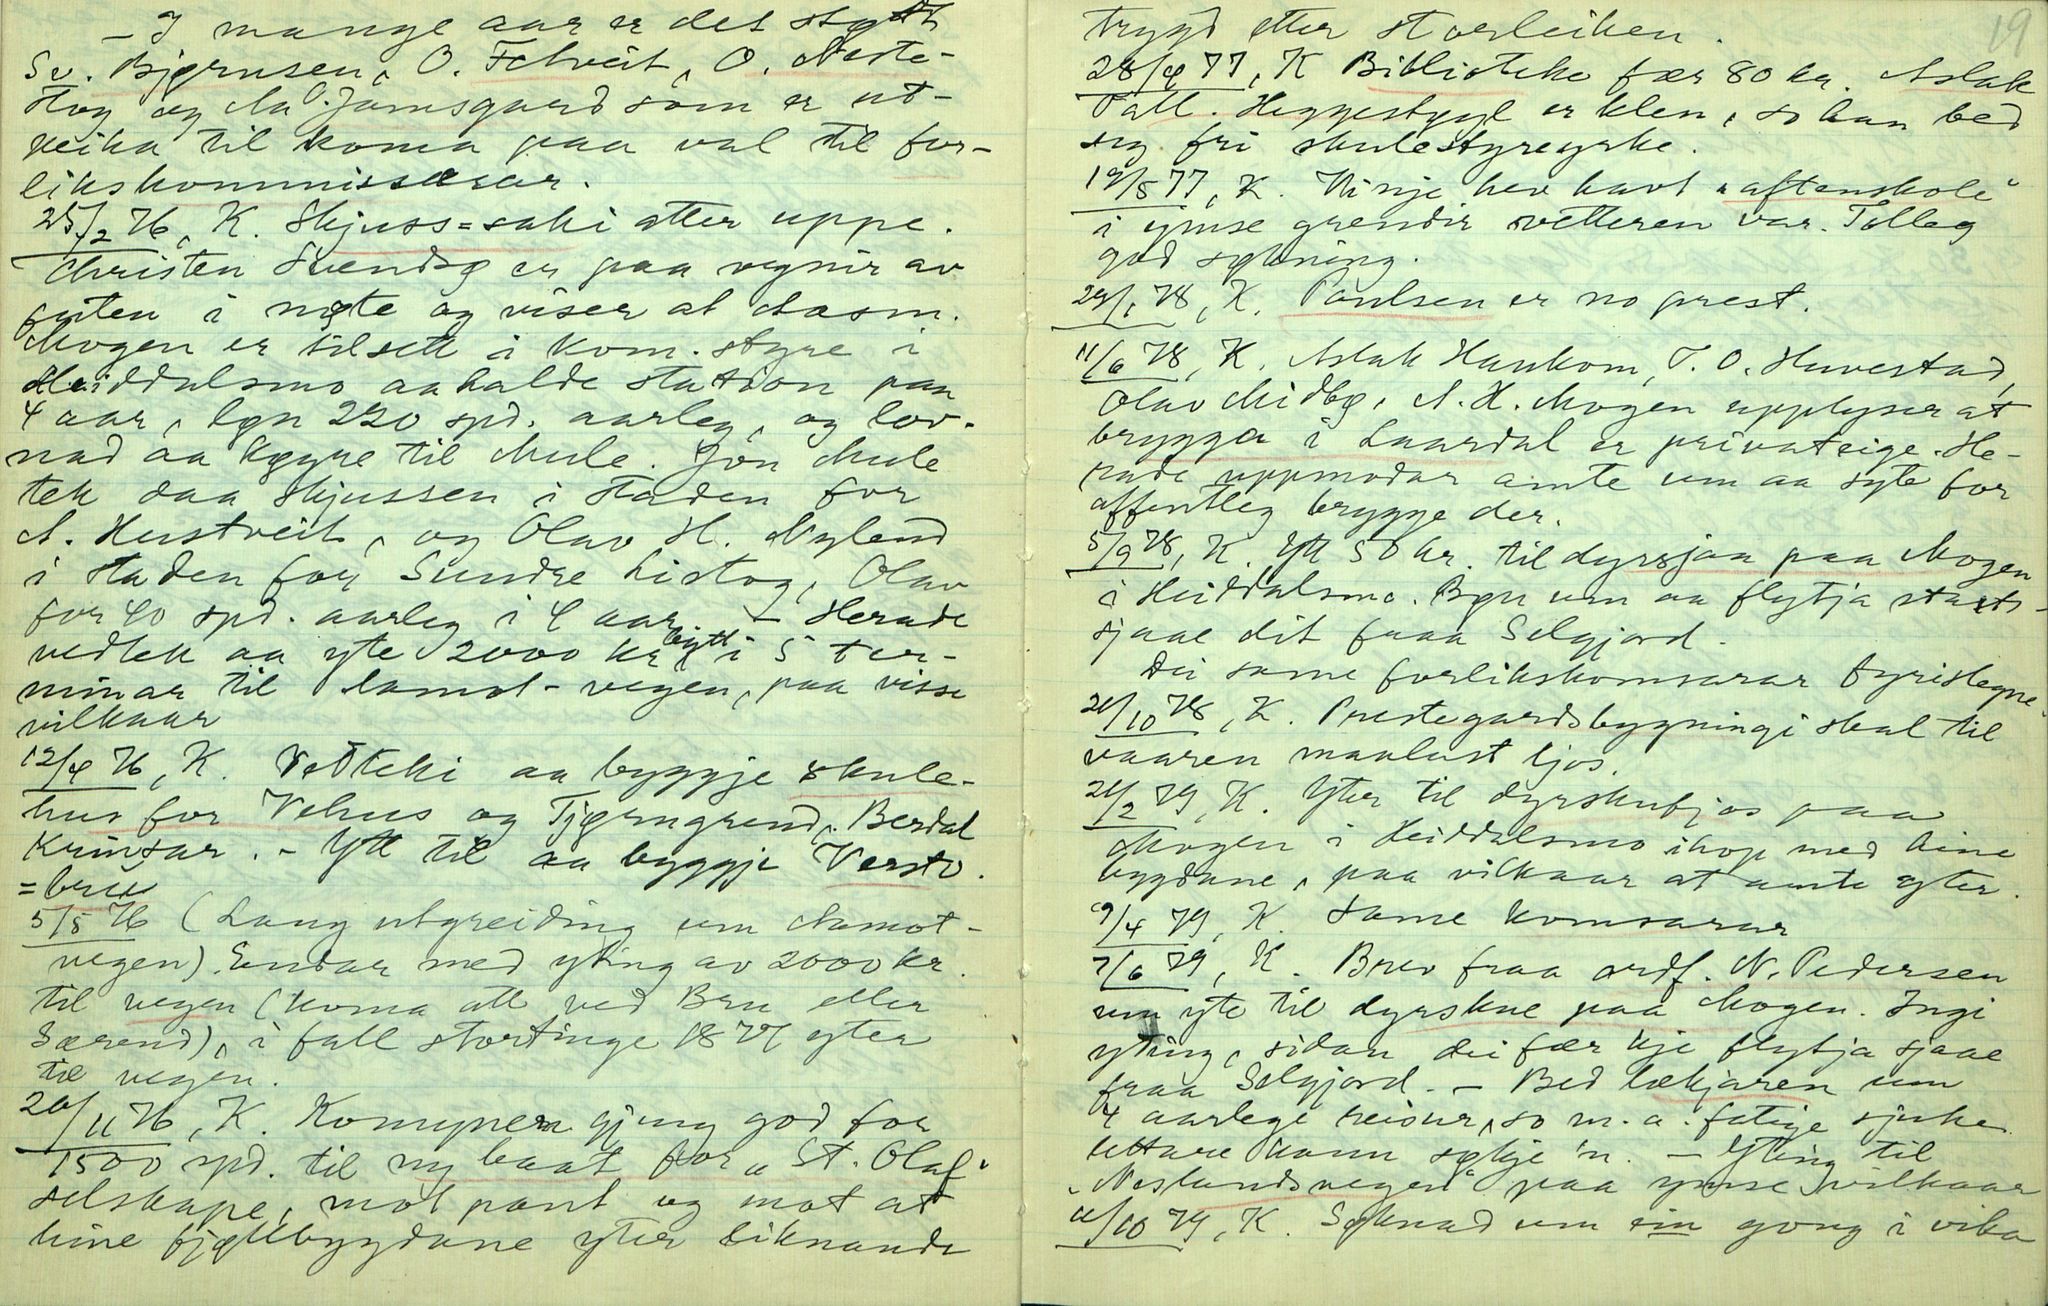 – I mange aar er det støtt
Sv. Bjørnsen, O. Felveit, O. Neste-
stog og Aa. Jamsgard som er ut-
peika til koma paa val til for-
likskommissærar.
25/2 76, K. Skjuss=saki atter uppe.
Christen Svends. er paa vegnir av
futen i møte og viser at Aasm.
Mogen er tilsett i kom. styre i
Heiddalsmo aa halde station paa
4 aar, løn 220 spd. aarleg, og lov-
nad aa køyre til Mule. Jon Mule
tek daa skjussen i staden for
A. Hustveit, og Olav H. Nylend
i staden for Sundre Listog, Olav
for 40 spd. aarleg i 4 aar. – Herade
vedtek aa yte 2000 kr. bytt i 5 ter-
minar til Aamot-vegen, paa visse
vilkaar
12/4 76, K. Vedteki aa byggje skule-
hus for Vehus og Tjørngrend, Berdal
krinsar. – Ytt til aa byggje Versto.
=brui
5/5 76 (Lang utgreiding um Aamot-
vegen). Endar med yting av 2000 kr.
til vegen (koma att ved Bru eller
Særend), i fall stortinge 1877 yter
til vegen.
20/11 76, K. Komunen gjeng god for
1500 spd. til ny baat for "St. Olaf"
selskape, mot pant og mot at
hine fjøllbygdane yter liknande
19
trygd etter storleiken.
28/4 77, K Biblioteke fær 80 kr. Aslak
Pall. Heggestøyl er klen, so han bed
seg fri skulestyreyrke.
19/5 77, K. Vinje hev havt "aftenskole"
i ymse grendir vetteren var. Tolleg
god søkning.
29/1 78, K. Paulsen er no prest.
11/6 78, K. Aslak Haukom, T. O. Huvestad,
Olav Midbø, A. H. Mogen upplyser at
brygga i Laardal er privateige. He-
rade uppmodar amte um aa syte for
offentleg brygge der.
5/9 78, K. Ytt 50 kr. til dyrsjaa paa Mogen
i Heiddalsmo. Bøn um aa flytja stats-
sjaae dit fraa Selgjord.
Dei same forlikskomsarar fyrislegne.
21/10 78, K. Prestegardsbygningi skal til
vaaren maalast ljos.
21/2 79, K. Yter til dyrskufjos paa
Mogen i Heiddalsmo ihop med hine
bygdane, paa vilkaar at amte yter.
9/4 79, K. Same komsarar
7/6 79, K. Brev fraa ordf. N. Pedersen
um yte til dyrskue paa Mogen. Ingi
yting, sidan dei fær kje flytja sjaae
fraa Selgjord. – Bed lækjaren um
4 aarlege reisur, so m. a. fatige sjuke
lettare kann søkje 'n. – Yting til
"Neslandsvegen" paa ymse vilkaar
11/10 79, K. Søknad um ein gong i vika